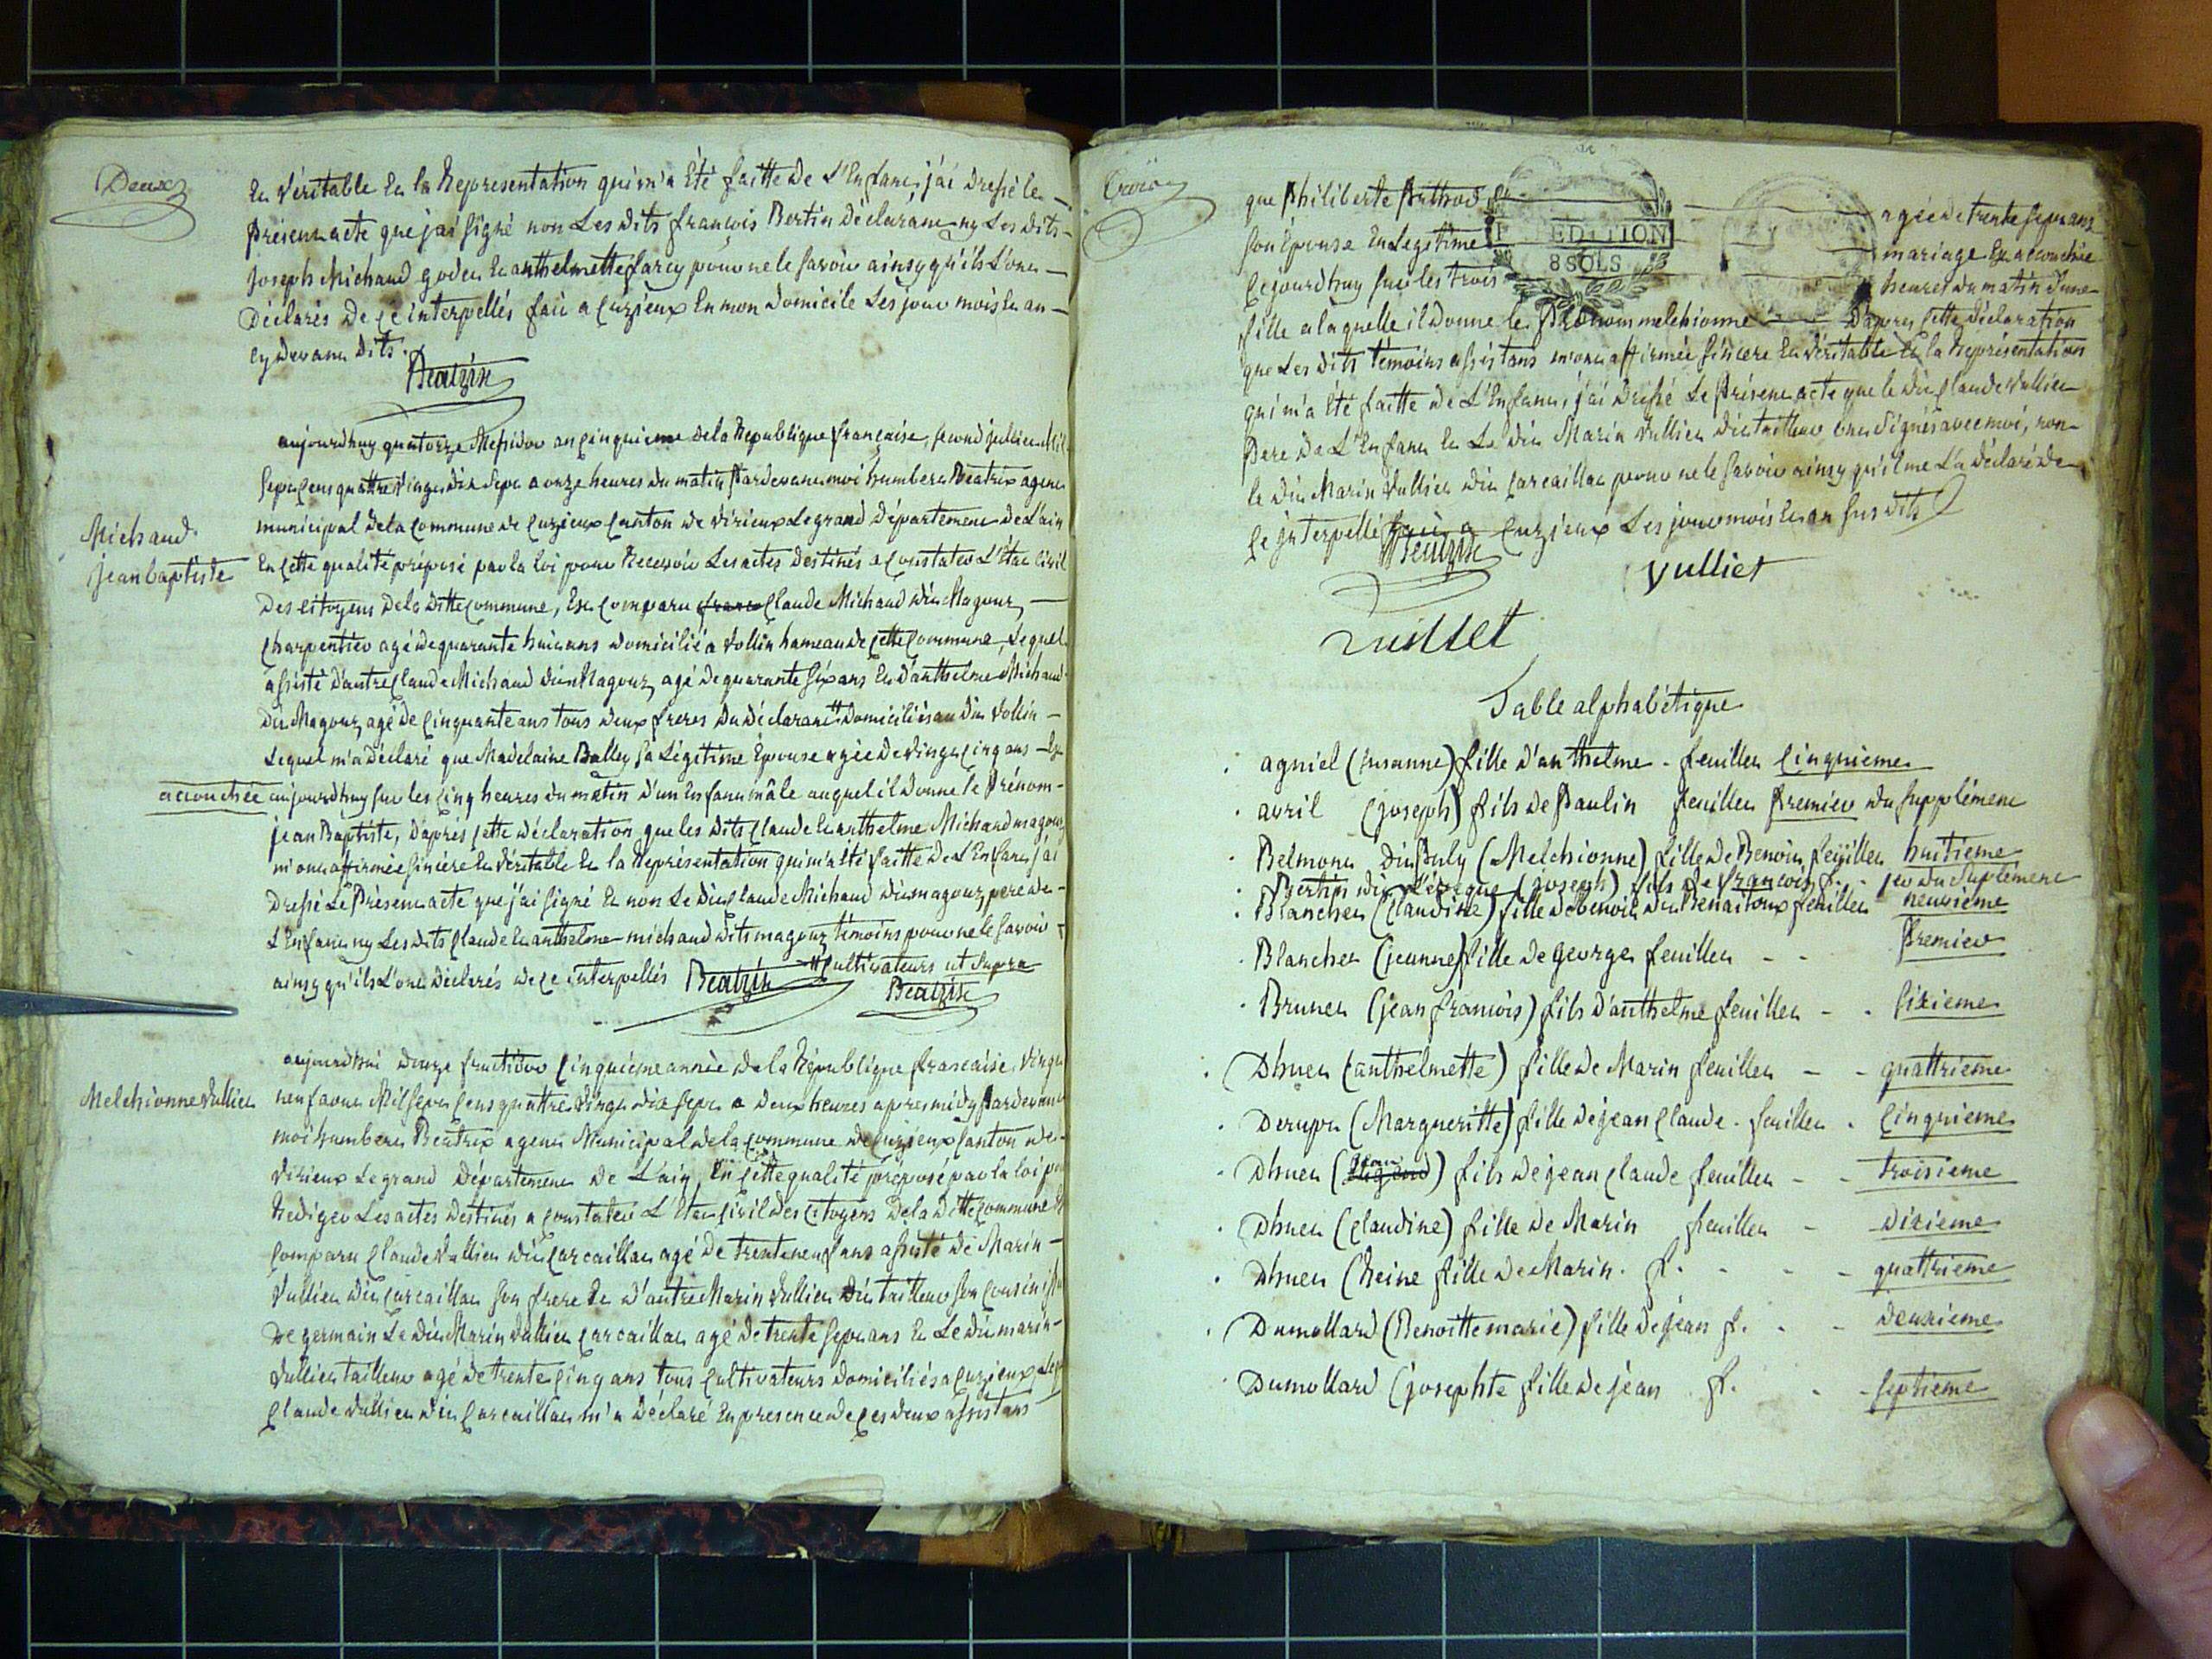 Deux
Et Véritable Et la Representation qui m'a Été faitte de L'Enfant, j'ai dressé le
présent acte que j'ai signé non Les dits françois Bertin déclarant ny Les dits
Joseph Michaud godet Et anthelmette farcy pour ne le savoir ainsy qu'ils L'ont
Déclarés de ce interpellés fait a Cuzieux En mon domicile Les jour mois Et an
cy devant dits.
Beatrix
aujourdhuy quatorze Messidor an cinquieme de la Republique française, second juillet Mil
Sept Cens quattre Vingt dix Sept a onze heures du matin Pardevant moi humbert Beatrix agent
municipal de la Commune de Cuzieux Canton de Virieux Legrand Département de L'ain
Michaud
jean baptiste
En Cette qualité préposé par la loi pour Recevoir Les actes destinés a Constater L'État Civil
des Citoyens de la ditte Commune, Est Comparu Claude Michaud dit Magouz
Charpentier agé de quarante huit ans domicilié a Vollin hameau de Cette Commune, Lequel
assisté d'autre Claude Michaud dit Magouz, agé de quarante six ans Et d'anthelme Michaud
dit Magouz agé de Cinquante ans tous deux freres du déclarant # domiciliés au dit Vollin
Lequel m'a déclaré que Madelaine Balley sa Légitime Épouse agée de Vingt cinq ans Est
accouchée aujourdhuy sur les Cinq heures du matin d'un Enfant mâle auquel il donne le Prénom
jean Baptiste, D'après Cette déclaration que les dits Claude Et anthelme Michaud magouz
m'ont affirmée sincère Et Véritable Et la Représentation qui m'a Été faitte de L'Enfant j'ai
dressé Le Présent acte que j'ai signé Et non Le dit Claude Michaud dit magouz pere de
L'Enfant ny Les dits Claude Et anthelme michaud dits magouz témoins pour ne le savoir
ainsy qu'ils L'ont déclarés de ce interpellés Beatrix # Cultivateurs ut supra
Beatrix
aujourdhui douze fructidor Cinquième année de la République francaise, Vingt
Melchionne Vulliet
neuf aout Mil Sept Cens quattre Vingt dix Sept a deux heures apres midy Pardevant
moi humbert Beatrix agent Municipal de la Commune de Cuzieux Canton de
Virieux Le grand Département de L'ain, En Cette qualité préposé par la loi
Rediger Les actes destinés a Constater L'État Civil des Citoyens de la ditte Commune
Comparu Claude Vulliet dit Carcaillat agé de trente neuf ans assisté de Marin
Vulliet dit Carcaillat son frere Et d'autre Marin Vulliet dit tailleur son Cousin
De germain Le dit Marin Vulliet Carcaillat agé de trente Sept ans Et Le dit marin
Vulliet tailleur agé de trente Cinq ans tous Cultivateurs domiciliés a Cuzieux
Claude Vulliet dit Carcaillat m'a déclaré En presence de Ces deux assistans
trois
que Philiberte Bithod agée de trente Sept ans
EXPEDITION
8 SOLS
son Épouse En Legitime mariage Est accouchée
Cejourdhuy sur les trois heures du matin d'une
fille a laquelle il donne le Prénom melchionne D'apres Cette déclaration
que Les dits témoins assistans m'ont affirmée sincere Et Véritable Et la Représentation
qui m'a Été faitte de L'Enfant, j'ai dressé Le Présent acte que le dit Claude Vulliet
Pere de L'Enfant Et Le dit Marin Vulliet dit tailleur ont Signés avec moi, non
le dit Marin Vulliet dit Carcaillat pour ne le savoir ainsy qu'il me L'a déclaré de
Ce interpellé fait a Cuzieux Les jour mois Et an sus dits
Beatrix
Vulliet
Vuillet
Table alphabétique
agniel (susanne) fille d'anthelme - feuillet Cinquieme
avril (joseph) fils de Paulin feuillet Premier du supplément
Belmont dit Puly (Melchionne) fille de Benoit feuillet huitieme
Bertin dit L'évêque (joseph) fils de françois f. 1er du suplément
Blanchet (Claudine) fille de benoit dit Benaitoux feuillet neuvieme
Blanchet (jeanne) fille de george feuillet - - Premier
Brunet (jean francois) fils d'anthelme feuillet - . Sixieme
Dhuet (anthelmette) fille de Marin feuillet - - quattrieme
Derupt (Margueritte) fille de jean Claude . feuillet . Cinquieme
Dhuet (jean) fils de jean Claude feuillet - - troisieme
Dhuet (Claudine) fille de Marin feuillet - dixieme
Dhuet (Reine fille de Marin . f. - - - quattrieme
Dumollard (Benoitte marie) fille de jean f. - - deuxieme
Dumollard (josephte fille de jean f. - - Septieme